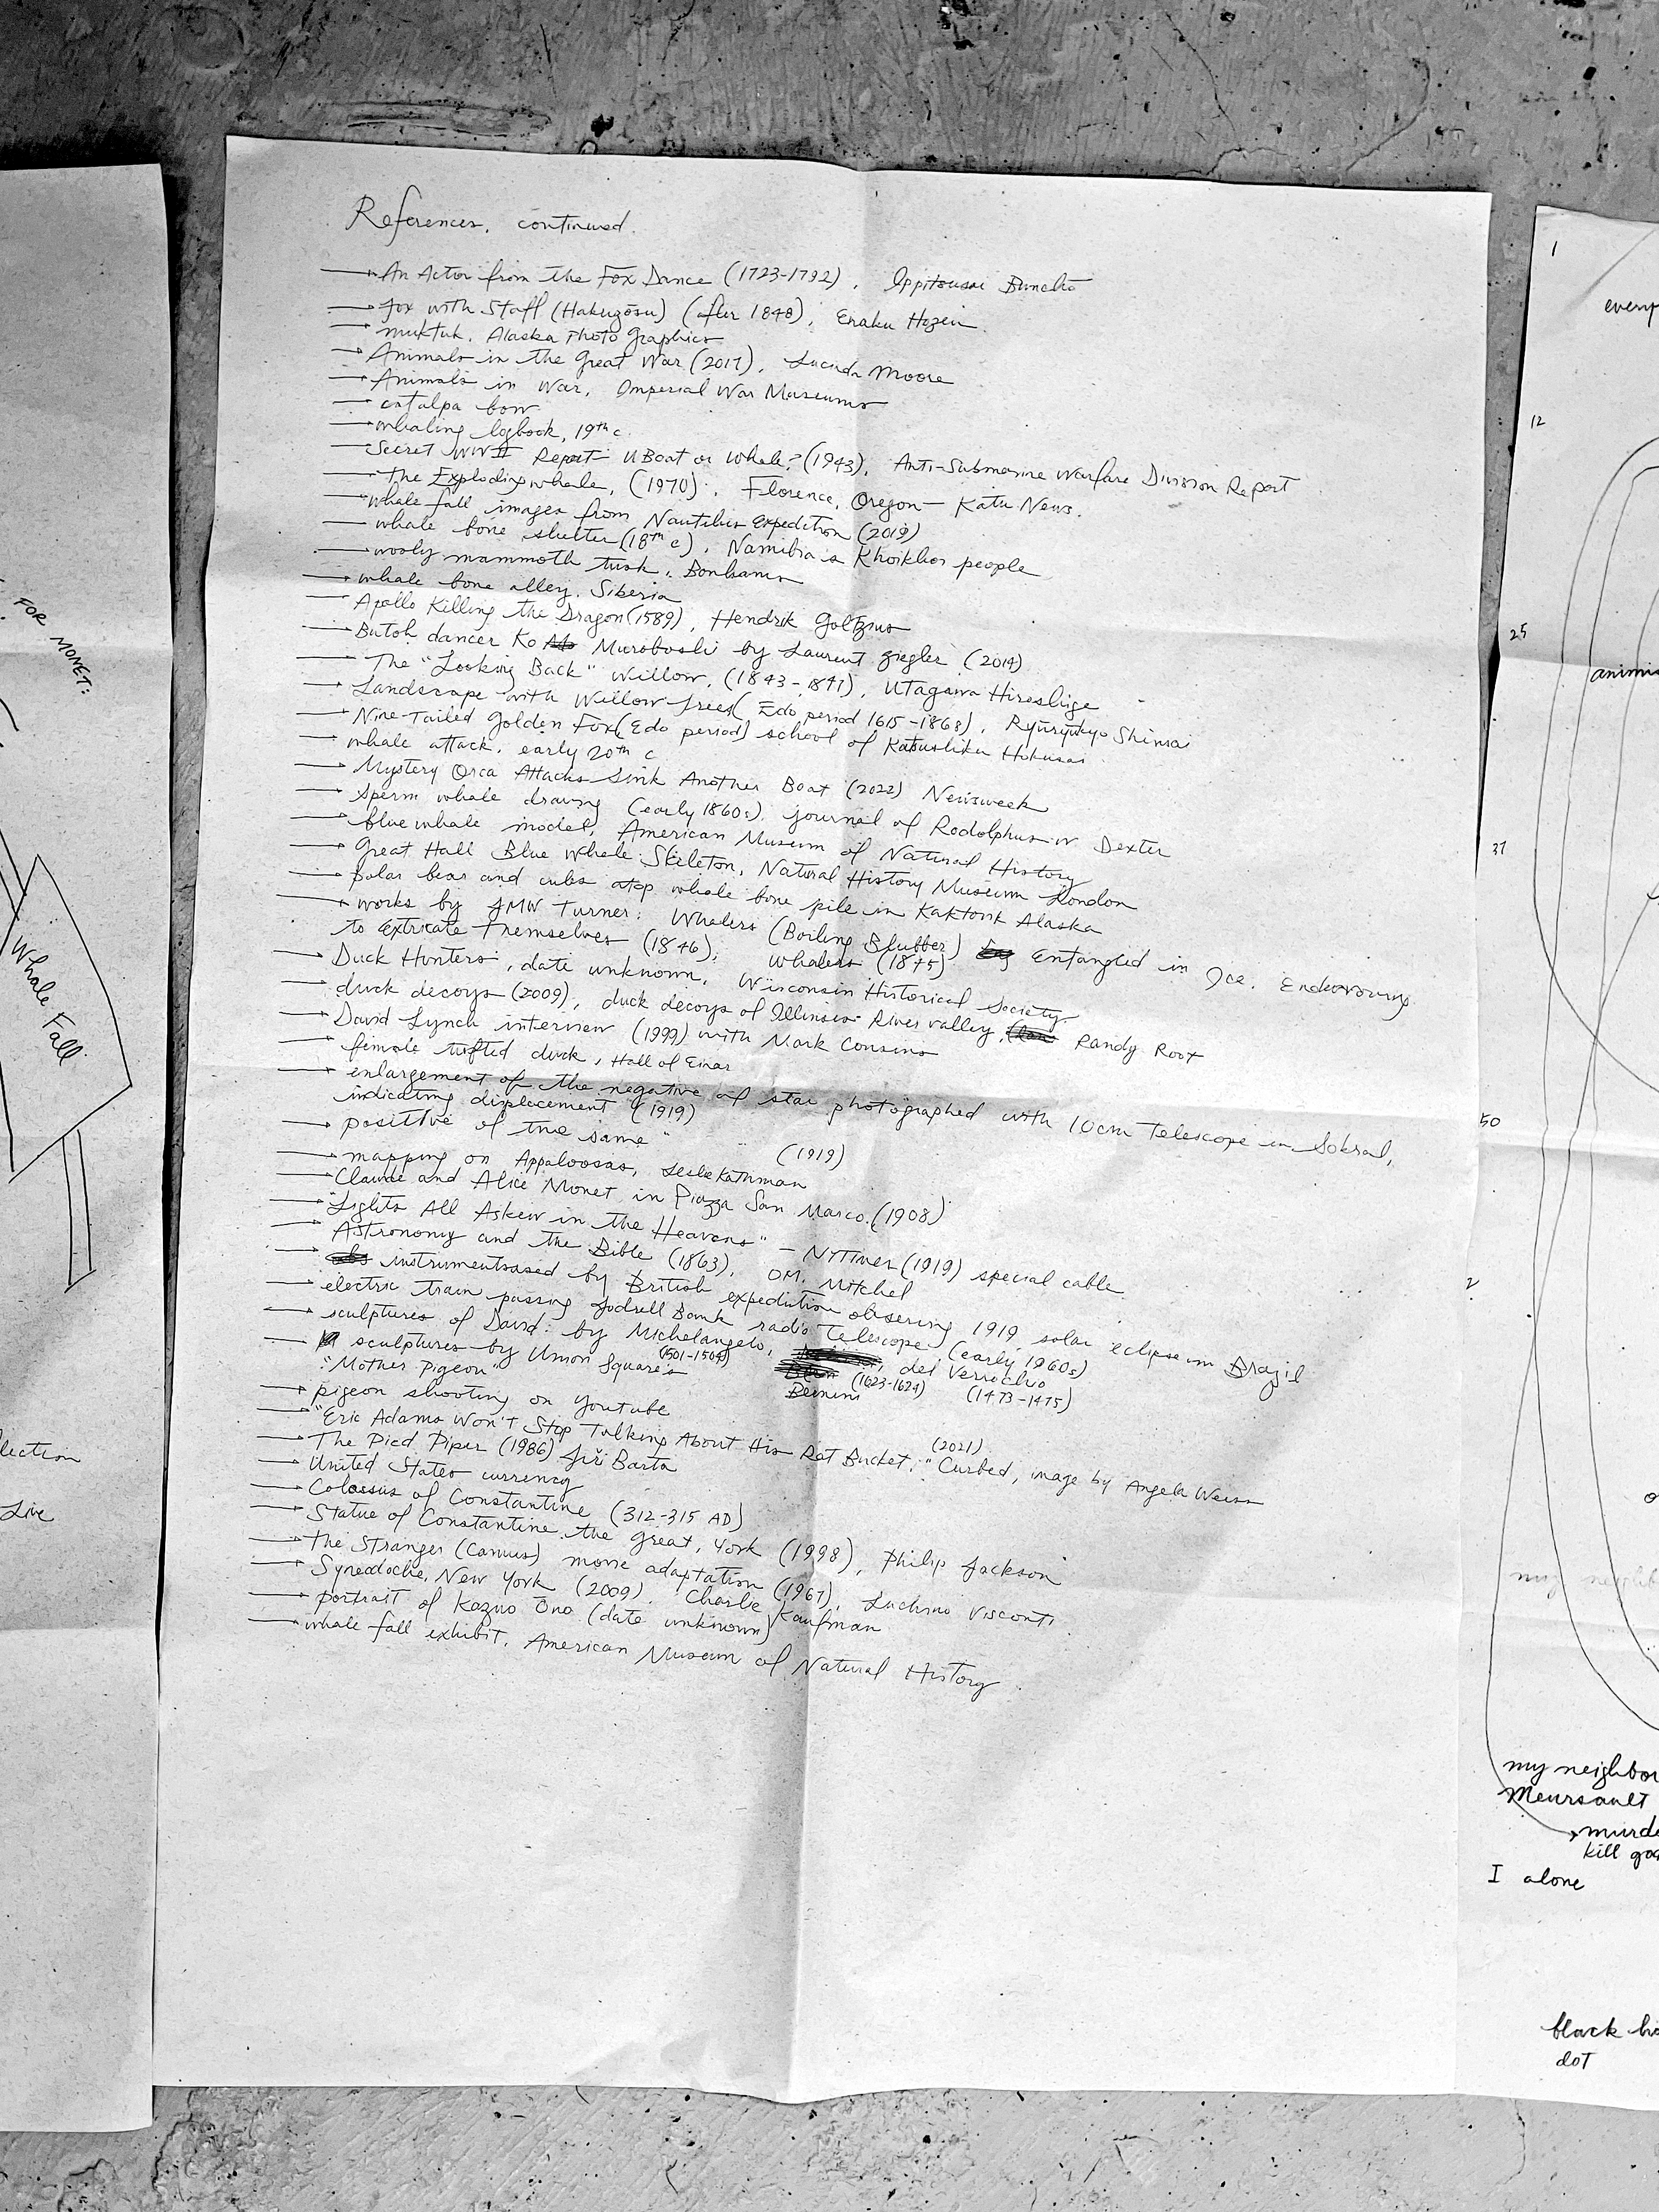 References, continued.
An Actor from the Fox Dance (1723-1792), Ippitsusai Buncho
fox with Staff (Hakuzōsu) (after 1848), Eraku Hozen
muktuk, Alaska Photo Graphics
Animals in the Great War (2017), Lucinda Moore
Animals in War, Imperial War Museums
catalpa bow
whaling logbook, 19th c.
Secret WWII Report U Boat or Whale? (1943), Anti-Submarine Warfare Division Report
The Exploding whale, (1970), Florence, Oregon - Katu News.
whale fall images from Nautilus Expedition (2019)
whale bone shelter (18th c), Namibia's Khoikhoi people
wooly mammoth tusk, Bonhams
whale bone alley, Siberia
Apollo Killing the Dragon (1589), Hendrik Goltzius
Butoh dancer Ko Murobushi by Laurent Ziegler (2014)
The "Looking Back" Willow, (1843-1847), Utagawa Hiroshige
Landscape with Willow Trees (Edo period 1615-1868), Ryūryūkyo Shinsai
Nine-Tailed Golden Fox (Edo period) school of Katsushika Hokusai
whale attack, early 20th c
Mystery Orca Attacks Sink Another Boat (2022) Newsweek
sperm whale drawing (early 1860s), journal of Rodolphus W Dexter
blue whale model, American Museum of Natural History
Great Hall Blue Whale Skeleton, Natural History Museum London
polar bear and cubs atop whale bone pile in Kaktovik Alaska
works by JMW Turner: Whalers (Boiling Blubber) Entangled in Ice, Endeavouring
to Extricate Themselves (1846), Whalers (1845)
Duck Hunters, date unknown, Wisconsin Historical Society
duck decoys (2009), duck decoys of Illinois River valley, Randy Root
David Lynch interview (1999) with Mark Cousins
female tufted duck, Hall of Einar
enlargement of the negative of star photographed with 10cm telescope in Sobral,
indicating displacement (1919)
positive of the same " " (1919)
mapping on Appaloosas, Leslie Kathman
Claude and Alice Monet in Piazza San Marco (1908)
"Lights All Askew in the Heavens" - NYTimes (1919) special cable
Astronomy and the Bible (1863), OM. Mitchel
instruments used by British expedition observing 1919 solar eclipse in Brazil
electric train passing Jodrell Bank radio Telescope (early 1960s)
sculptures of David: by Michelangelo, (1501-1504) Bernini (1623-1624), del Verrochio (1473-1475)
sculptures by Union Square's
"Mother Pigeon"
pigeon shooting on Youtube
"Eric Adams Won't Stop Talking About His Rat Bucket," (2021) Curbed, image by Angela Weiss
The Pied Piper (1986) Jiří Barta
United States currency
Colossus of Constantine (312-315 AD)
Statue of Constantine the Great, York (1998), Philip Jackson
The Stranger (Camus) movie adaptation (1967), Luchino Visconti
Synecdoche, New York (2009), Charlie Kaufman
portrait of Kazuo Ōno (date unknown)
whale fall exhibit, American Museum of Natural History
FOR MONET:
Whale Fall
lection
Live
1
every
12
25
animis
37
50
2
my neighbor
Meursault
murde
kill goa
I alone
black ho
dot